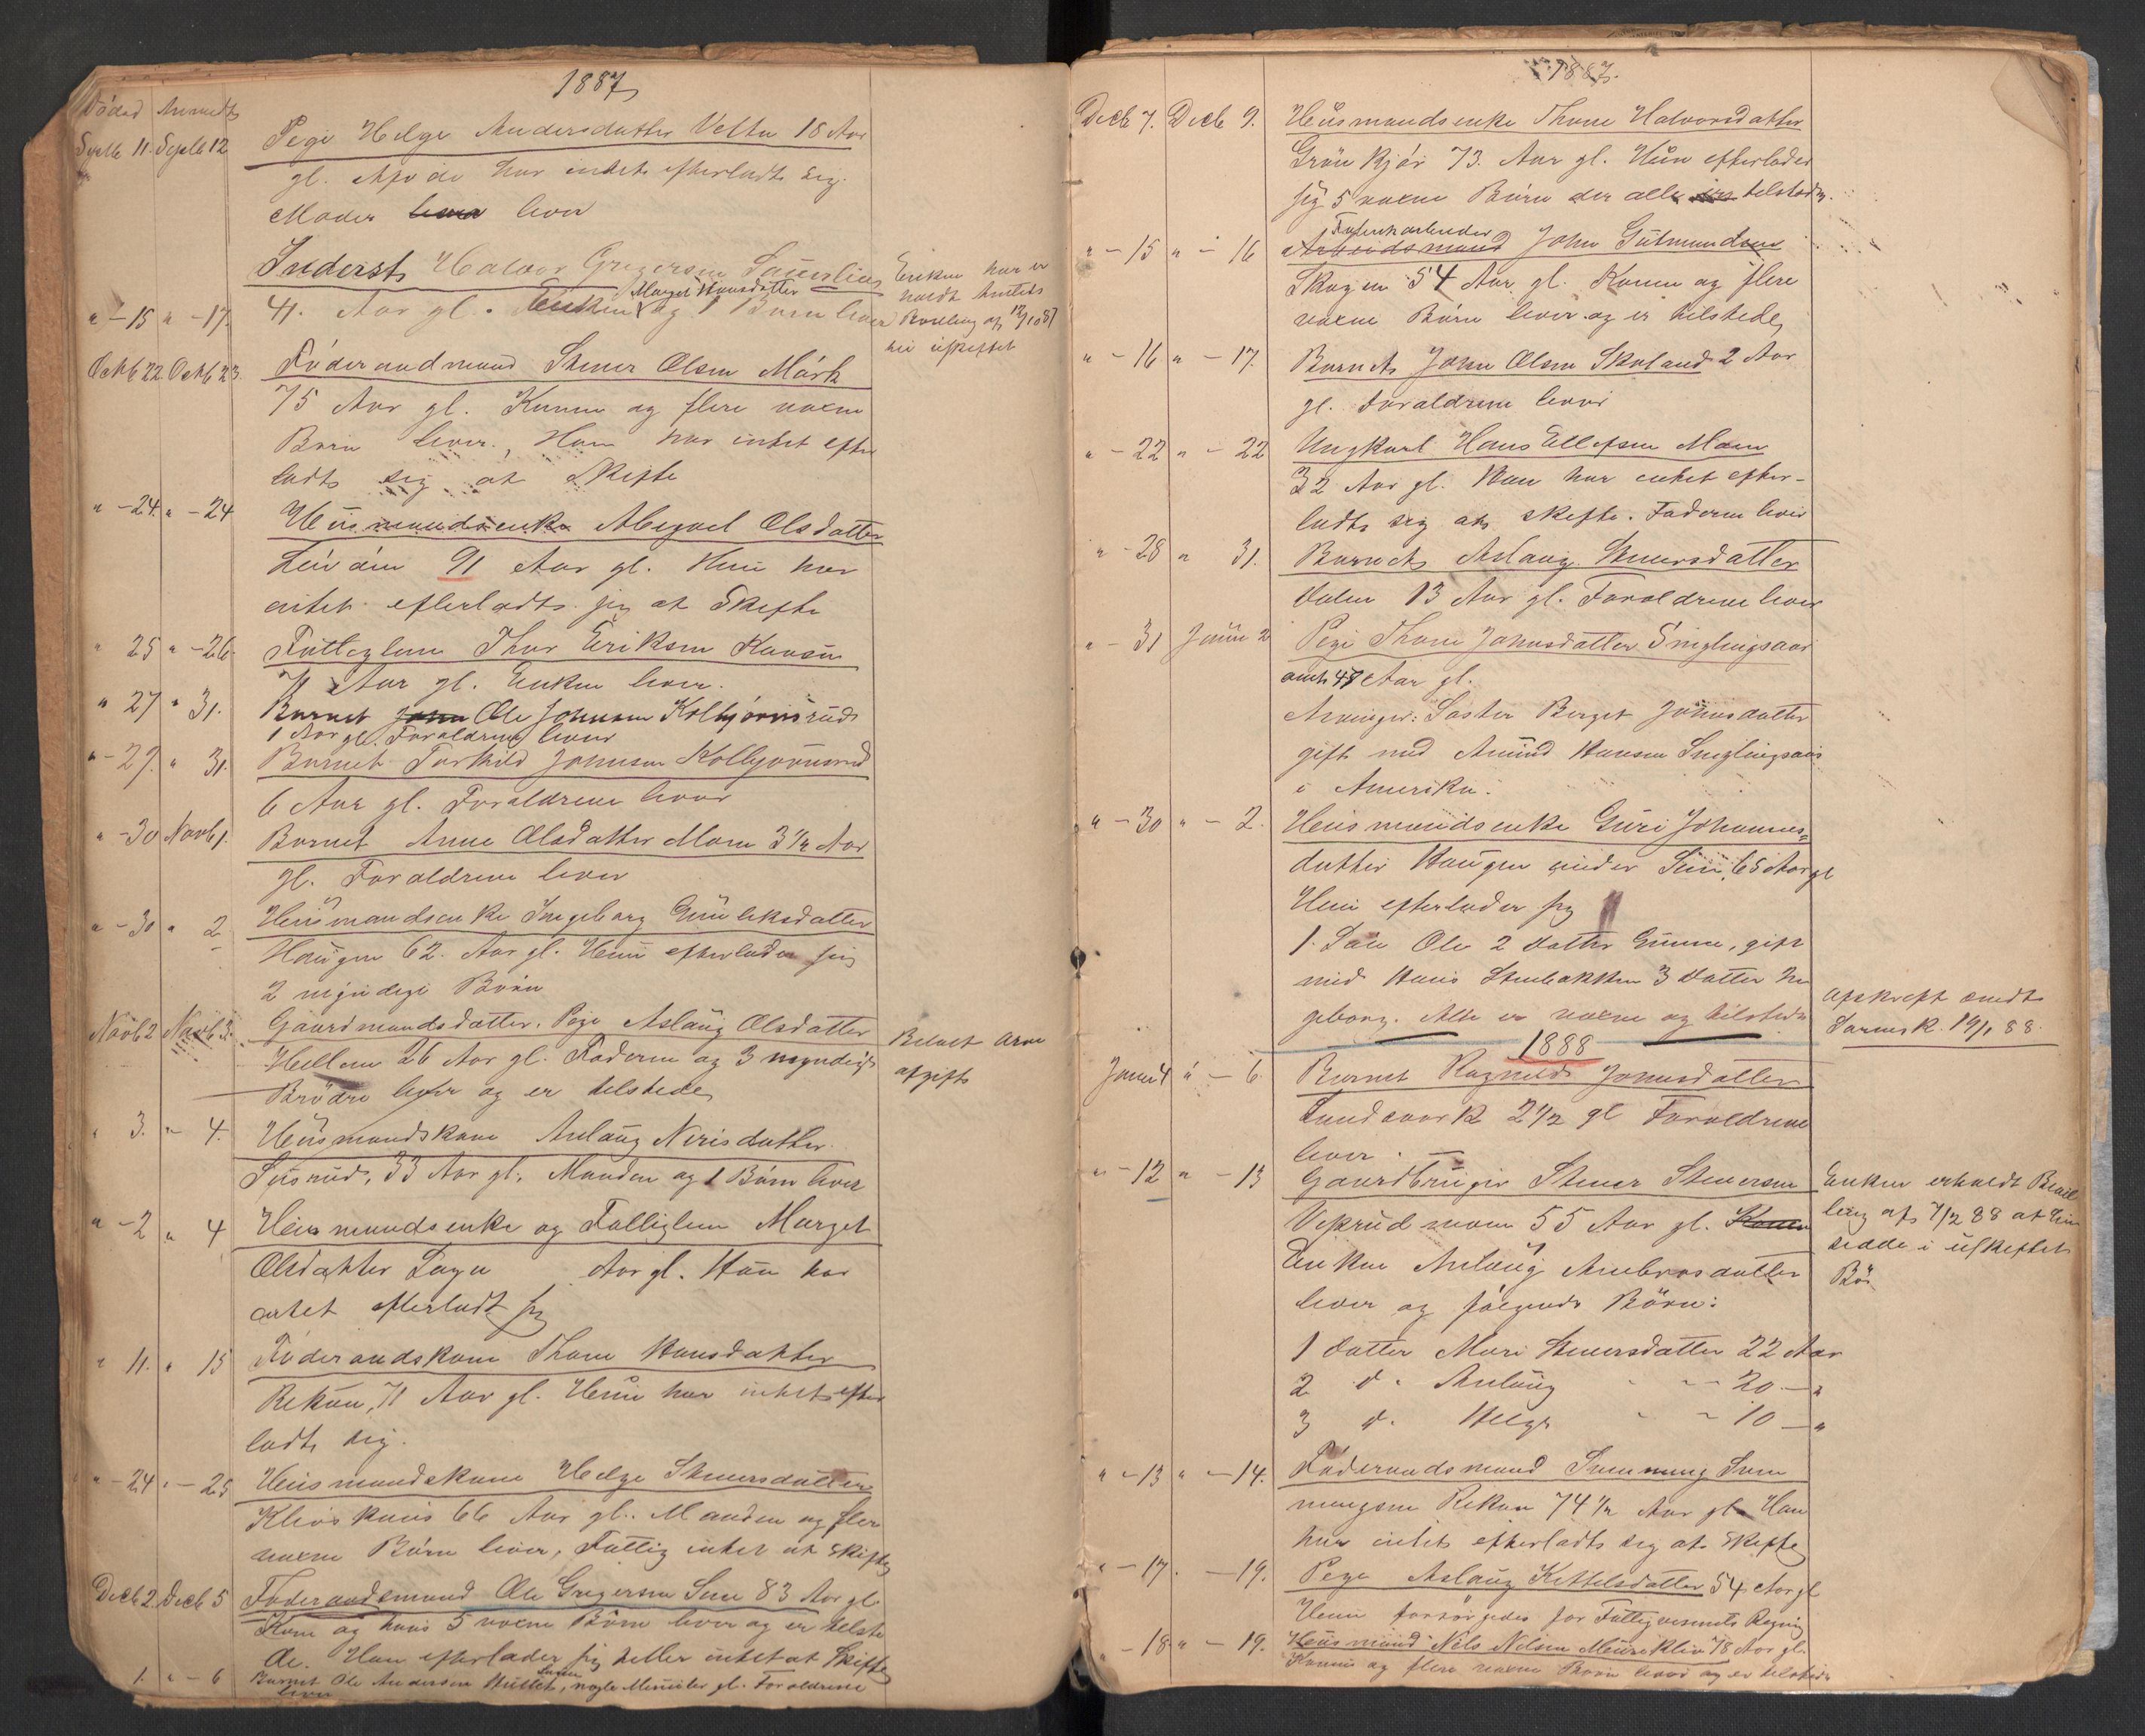 1887
Döde Anmeldt
Septb 11. Septb 12 Pige Helge Andersdatter Aar
gl. har intet efterladt sig.
Moder lever
Inderst Halvor Gregersen
" - 15 " - 17. 41. Aar gl. Enken Margit Hansdatter og 1 Barn lever
Enken har er
holdt Amtets
Bevilling af
Octb 22 Octb 23. Föderaadmand Stener Olsen Mörk
75 Aar gl. Konen og flere voxne
Börn lever., Han har intet efter
ladt sig at Skifte
" - 24. " - 24 Huusmandsenke Abigael Olsdatter
91 Aar gl. Hun har
intet efterladt sig at Skifte
" 25 " - 26. Fattiglem Thor Eriksen
71 Aar gl. Enken lever.
" 27 " 31. Barnet John Ole Johnsen Kolbjörnsrud
1 Aar gl. Foraldrene lever
" - 27. " 31. Barnet Torkild Johnsen Kolbjörnsrud
6 Aar gl. Foraldrene lever
" - 30 Novb 1. Barnet Anne Olsdatter Moen 3 1/2 Aar
gl. Foraldrene lever
" - 30 " 2 Huusmandsenke Ingeborg Gunleksdatter
Haugen 62. Aar gl. Hun efterlader sig
2 myndige Börn
Novb 2 Novb 3. Gaardmandsdatter. Pige Aslaug Olsdatter
Hellem 26 Aar gl. Faderen og 3 myndige
Brödre lever og er tilstede
Arve
afgift
" 3. " - 4. Huusmandskone Anlaug Nirisdatter
33 Aar gl. Manden og 1 Barn lever
" - 2 " 4 Huusmandsenke og Fattiglem Marget
Olsdatter Aar gl. Hun har
intet efterladt sig
" 11. " 15 Föderaadskone Thone Hansdatter
71 Aar gl. Hun har intet efter
ladt sig.
" - 24 " - 25 Huusmandskone Helge Stenersdatter
66 Aar gl. Manden og flere
voxne Börn lever, Fattig intet at Skifte
Decb 2. Decb 5 Föderaadsmand Ole Gregersen 83 Aar gl.
Kone og hans 5 voxne Börn lever og er tilste
de. Han efterlader sig heller intet at Skifte
1. " - 6 Barnet Ole Andersen nogle Minuter gl. Foraldrene
lever
1887.
Decb 7. Decb 9. Huusmandsenke Thone Halvorsdatter
Grönkjær 73. Aar gl. Hun efterlader
sig 5 voxne Börn der alle er tilstede.
" - 15 " - 16 Arbeidsmand John Gutmundsen
Skogen 54 Aar gl. Konen og flere
voxne Börn lever og er tilstede
" - 16 " - 17. Barnet John Olsen Skoland 2 Aar
gl. Foraldrene lever
" - 22 " - 22 Ungkarl Hans Ellefsen Moen
32 Aar gl. Han har intet efter-
ladt sig at skifte. Faderen lever
" - 28 " 31. Barnet Aslaug Stenersdatter
Dalen 13 Aar gl. Foraldrene lever
" - 31 Januar 2 Pige Thone Johnsdatter
omt. 47 Aar gl.
Arvinger: Söster Berget Johnsdatter
gift med Amund Hansen
i Amerika.
" - 30 " - 2. Huusmandsenke Guri Johannes=
datter Haugen under 65 Aar gl
Hun efterlader sig
1. Sön Ole 2 Datter Gunne, gift
med Hans Stenbakken 3 Datter In
geborg. Alle er voxne og tilstede
Afskrift sendt
19/1 88.
1888
Januar 4 " - 6 Barnet Ragnild Johnsdatter
2 1/2 gl Foraldrene
lever.
" - 12 " - 13 Gaardbruger Stener Stenersen
Vekrud 55 Aar gl. Konen
Enken Anlaug Ambrosdatter
lever og fölgende Börn:
Enken erholdt Bevil
ling af 7/2 88 at hen
sidde i uskiftet
Bo
1 Datter Mari Stenersdatter 22 Aar
2 d. Anlaug " - 20 - "
3 d. Helge " - 10 - "
" - 13 " - 14. Föderaadsmand Sven
ningsen 74 1/2 Aar gl. Han
har intet efterladt sig at Skifte
" - 17. - 19. Pige Aslaug Kittelsdatter 54 Aar gl
Hun forsörgedes for Fattigvesenets Regning
- 18 " - 19. Huusmand Nils Nilsen 78 Aar gl.
Konen og flere voxne Börn lever og er tilstede